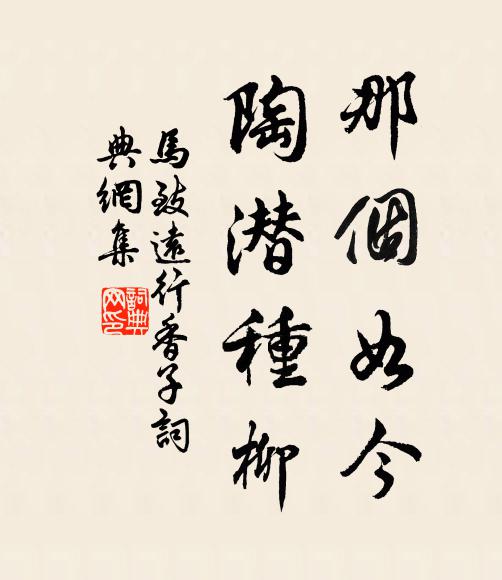 那個如今
陶潜種柳
馬致遠行香子詞
典網集
詞典
网印